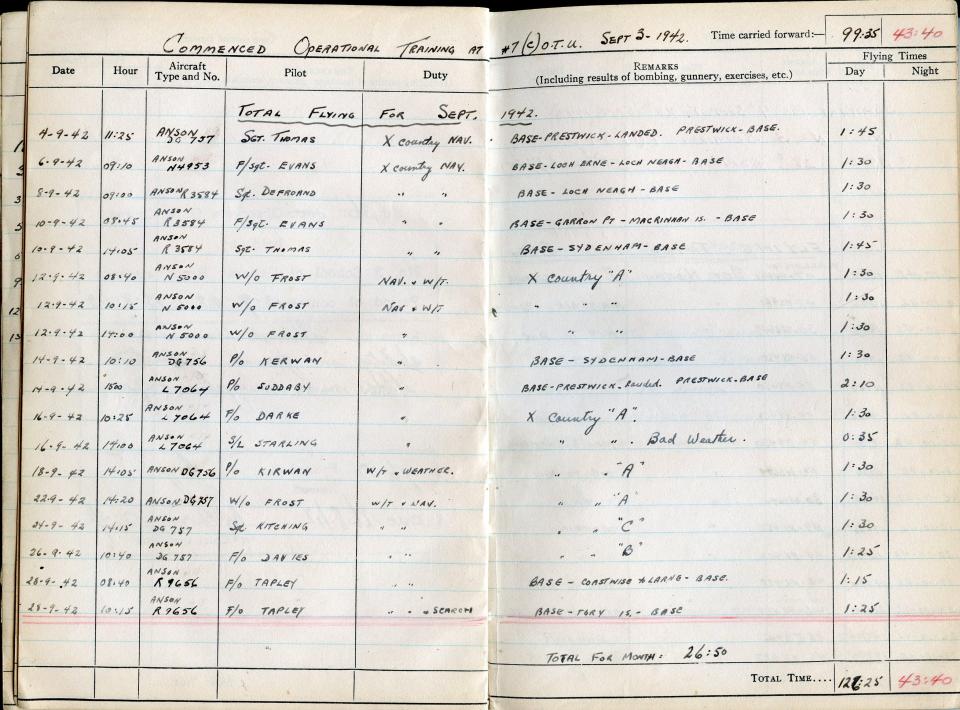 COMMENCED OPERATIONAL TRAINING AT #7 (C) O.T.U. SEPT 3-1942. Time carried forward:— 99:35 43:40
Date Hour Aircraft Type and No. Pilot Duty REMARKS (Including results of bombing, gunnery, exercises, etc.) Flying Times Day Night
TOTAL FLYING FOR SEPT. 1942.
4-9-42 11:25 ANSON DG 757 SGT. THOMAS X country NAV. BASE-PRESTWICK-LANDED. PRESTWICK-BASE. 1:45
6-9-42 09:10 ANSON N4953 F/Sgt. EVANS X country NAV. BASE-LOCH ERNE-LOCH NEAGH-BASE 1:30
8-9-42 09:00 ANSON R3584 Sgt. DEFROAND " " BASE-LOCH NEAGH-BASE 1:30
10-9-42 08:45 ANSON R3584 F/Sgt. EVANS " " BASE-GARRON PT-MACRINAAN IS.-BASE 1:30
10-9-42 14:05 ANSON R3584 Sgt. THOMAS " " BASE-SYDENHAM-BASE 1:45
12-9-42 08:40 ANSON N5000 W/O FROST NAV. & W/T. X country "A" 1:30
12-9-42 10:15 ANSON N5000 W/O FROST NAV & W/T " " " 1:30
12-9-42 14:00 ANSON N5000 W/O FROST " " " " 1:30
14-9-42 10:10 ANSON DG756 P/O KERWAN " BASE-SYDENHAM-BASE 1:30
14-9-42 1500 ANSON L7064 P/O SUDDABY " BASE-PRESTWICK-Landed. PRESTWICK-BASE 2:10
16-9-42 10:25 ANSON L7064 F/O DARKE " X Country "A". 1:30
16-9-42 14:00 ANSON L7064 S/L STARLING " " " . Bad Weather. 0:35
18-9-42 14:05 ANSON DG756 P/O KIRWAN W/T & WEATHER. " " "A" 1:30
22-9-42 14:20 ANSON DG757 W/O FROST W/T & NAV. " " "A" 1:30
24-9-42 14:15 ANSON DG757 Sgt. KITCHING " " " " "C" 1:30
26-9-42 10:40 ANSON DG757 F/O DAVIES " " " " "B" 1:25
28-9-42 08:40 ANSON R9656 F/O TAPLEY " " BASE-COASTWISE to LARNE-BASE. 1:15
28-9-42 10:15 ANSON R9656 F/O TAPLEY " " & SEARCH BASE-TORY IS.-BASE 1:25
TOTAL FOR MONTH: 26:50
TOTAL TIME.... 126:25 43:40